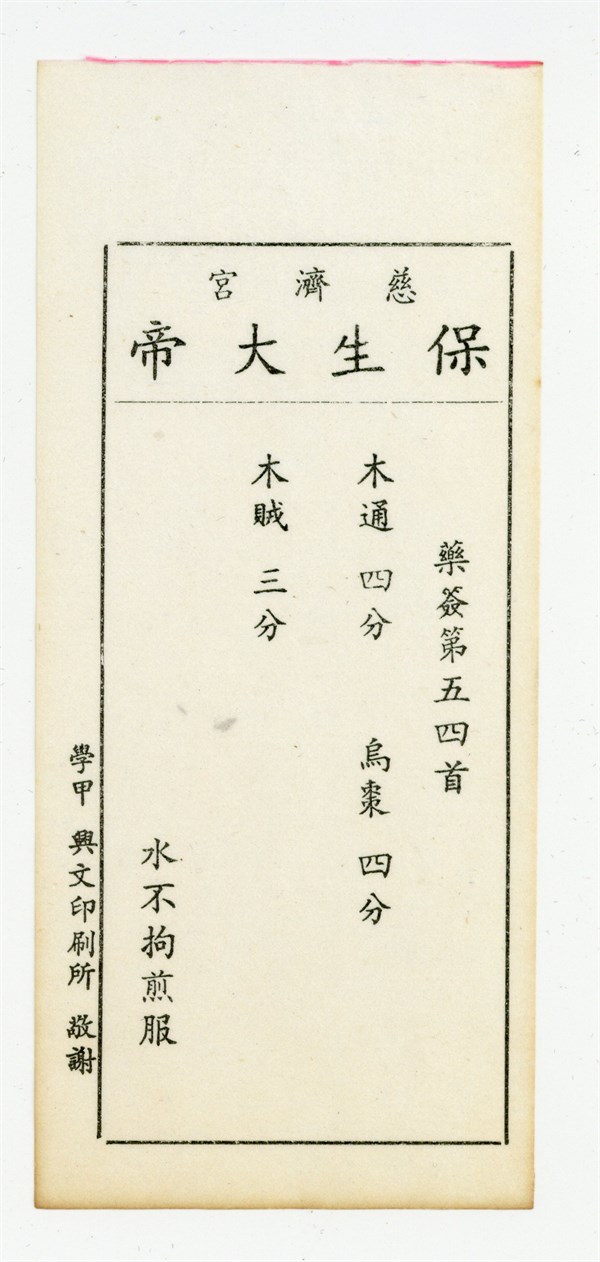 慈濟宮
保生大帝
藥簽第五四首
木通 四分 烏棗 四分
木賊 三分
水不拘煎服
學甲 興文印刷所 敬謝